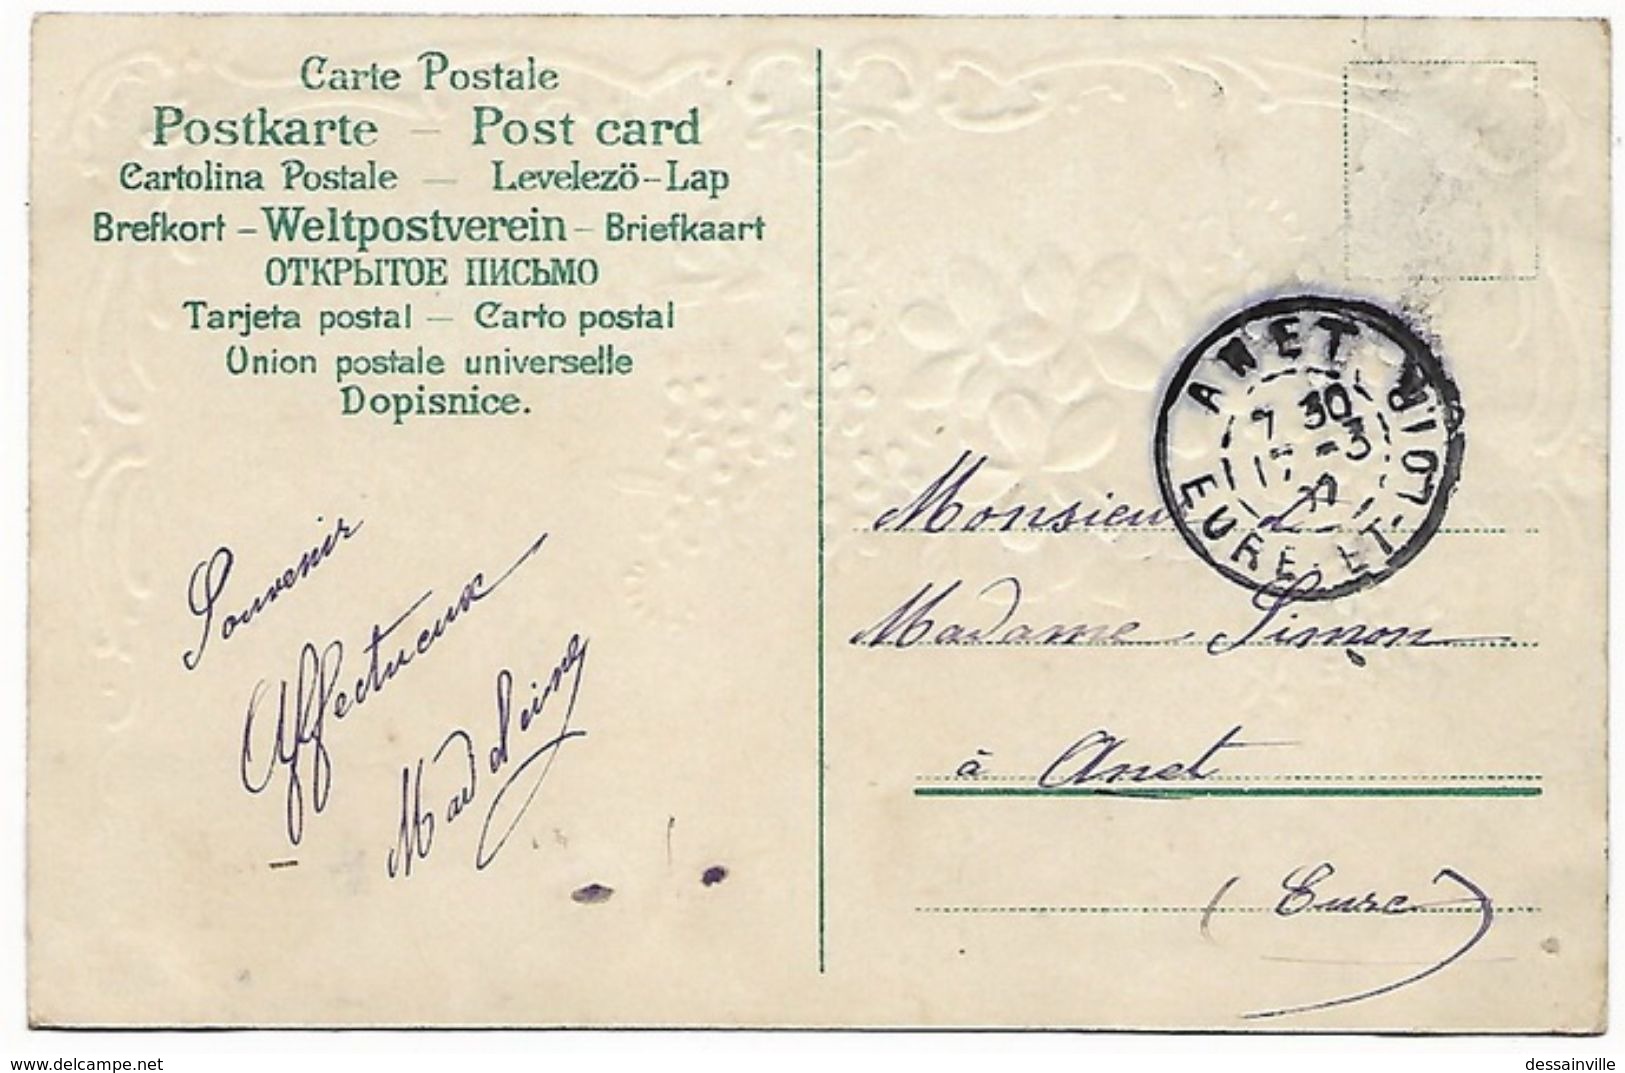 Carte Postale
Postkarte – Post card
Cartolina Postale – Levelezö-Lap
Brefkort – Weltpostverein – Briefkaart
ОТКРЫТОЕ ПИСЬМО
Tarjeta postal – Carto postal
Union postale universelle
Dopisnice.
Souvenir
Affectueux
ANET
7 30
17 -3
EURE-ET-LOIR
Monsieur et
Madame Simon
à Anet
(Eure)
delcampe.net
dessainville